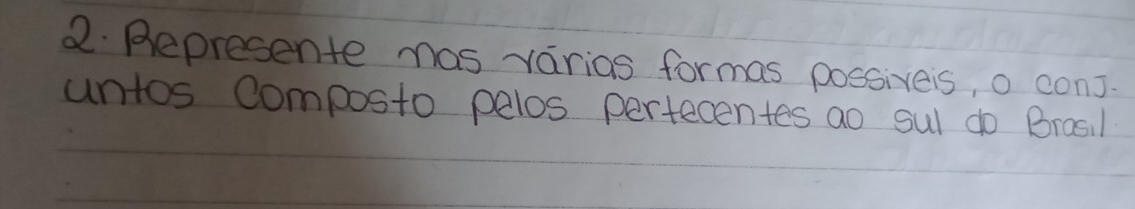 2. Represente nas várias formas possiveis, o conj-
untos composto pelos pertecentes ao sul do Brasil